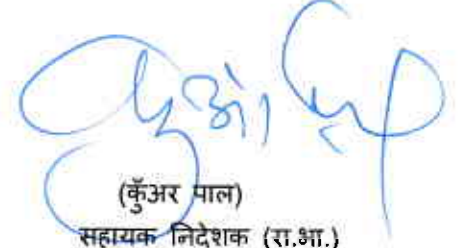 (कुँअर पाल)
सहायक निदेशक (रा.भा.)